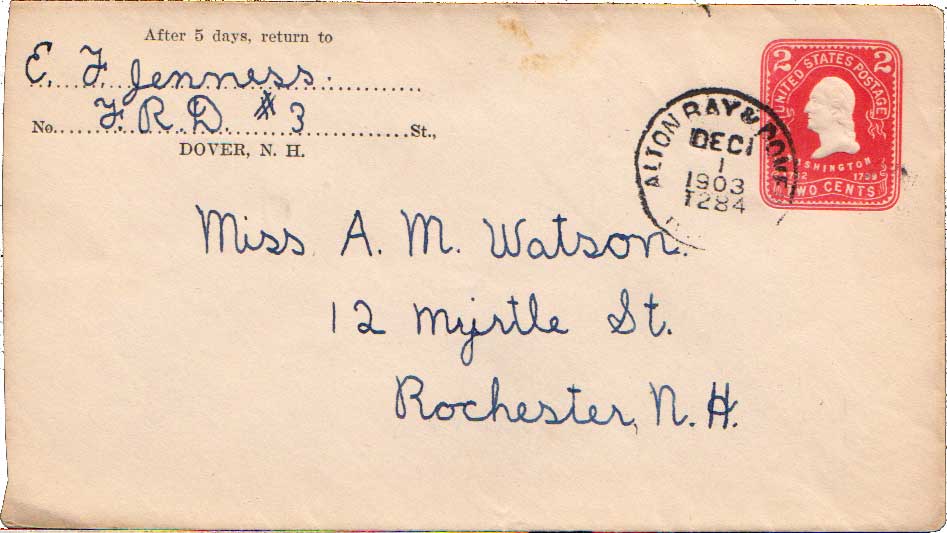 After 5 days, return to
E. F. Jenness.
F. R. D. # 3
No. St.,
DOVER, N. H.
2 2
UNITED STATES POSTAGE
WASHINGTON
TWO CENTS
ALTON BAY & DOVER
DEC 1
1
1903
1284
Miss A. M. Watson.
12 Myrtle St.
Rochester, N. H.